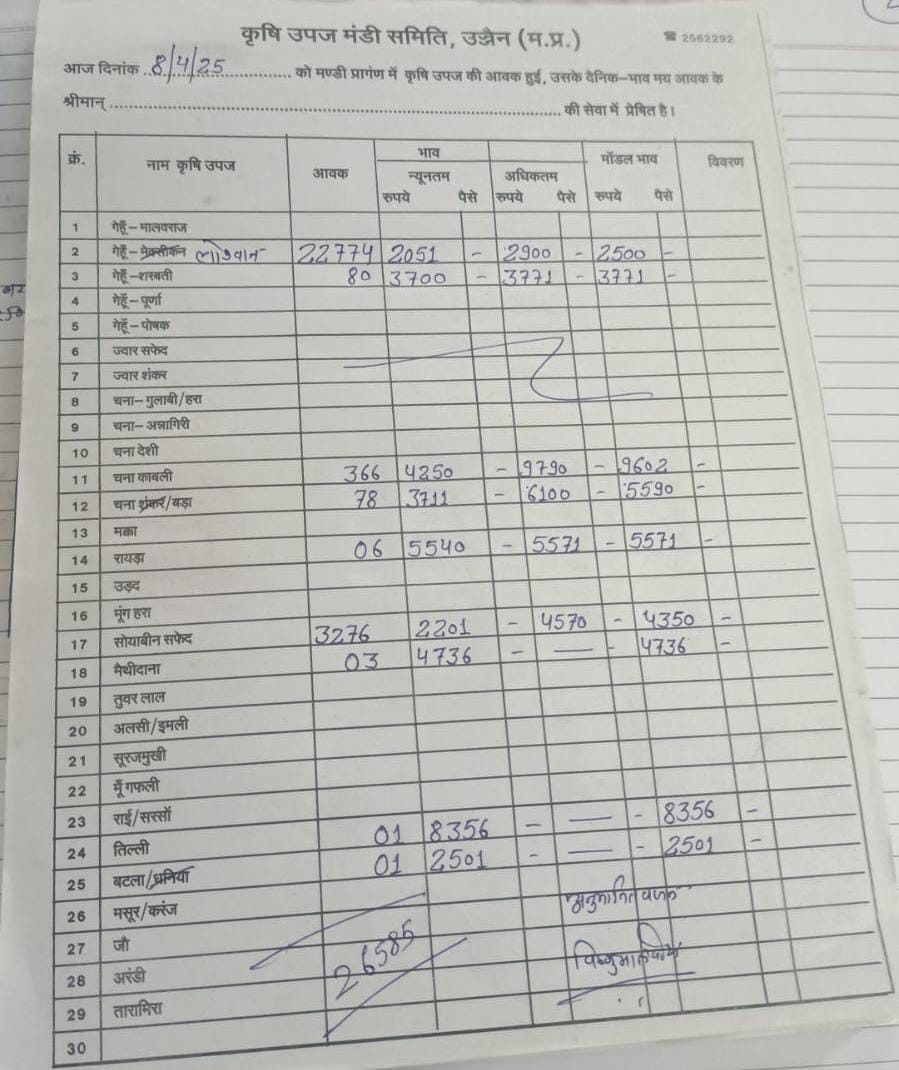 कृषि उपज मंडी समिति, उज्जैन (म.प्र.) ☎ 2562292
आज दिनांक ..8/4/25.............. को मण्डी प्रागंण में कृषि उपज की आवक हुई, उसके दैनिक-भाव मय आवक के
श्रीमान् ............................................................ की सेवा में प्रेषित है।
क्रं. नाम कृषि उपज आवक भाव मॉडल भाव विवरण
न्यूनतम अधिकतम
रुपये पैसे रुपये पैसे रुपये पैसे
1 गेहूँ-मालवराज
2 गेहूँ-मेक्सीकन लोकवान 22774 2051 - 2900 - 2500 -
3 गेहूँ-शरबती 80 3700 - 3771 - 3771 -
4 गेहूँ-पूर्णा
5 गेहूँ-पोषक
6 ज्वार सफेद
7 ज्वार शंकर
8 चना-गुलाबी/हरा
9 चना-अन्नागिरी
10 चना देशी
11 चना काबली 366 4250 - 9790 - 9602 -
12 चना शंकर/बड़ा 78 3711 - 6100 - 5590 -
13 मक्का
14 रायड़ा 06 5540 - 5571 - 5571 -
15 उड़द
16 मूंग हरा
17 सोयाबीन सफेद 3276 2201 - 4570 - 4350 -
18 मैथीदाना 03 4736 - — - 4736 -
19 तुवर लाल
20 अलसी/इमली
21 सूरजमुखी
22 मूँगफली
23 राई/सरसों
24 तिल्ली 01 8356 - — - 8356 -
25 बटला/धनियाँ 01 2501 - — - 2501 -
26 मसूर/करंज
27 जौ
28 अरंडी 26585
29 तारामिरा
30